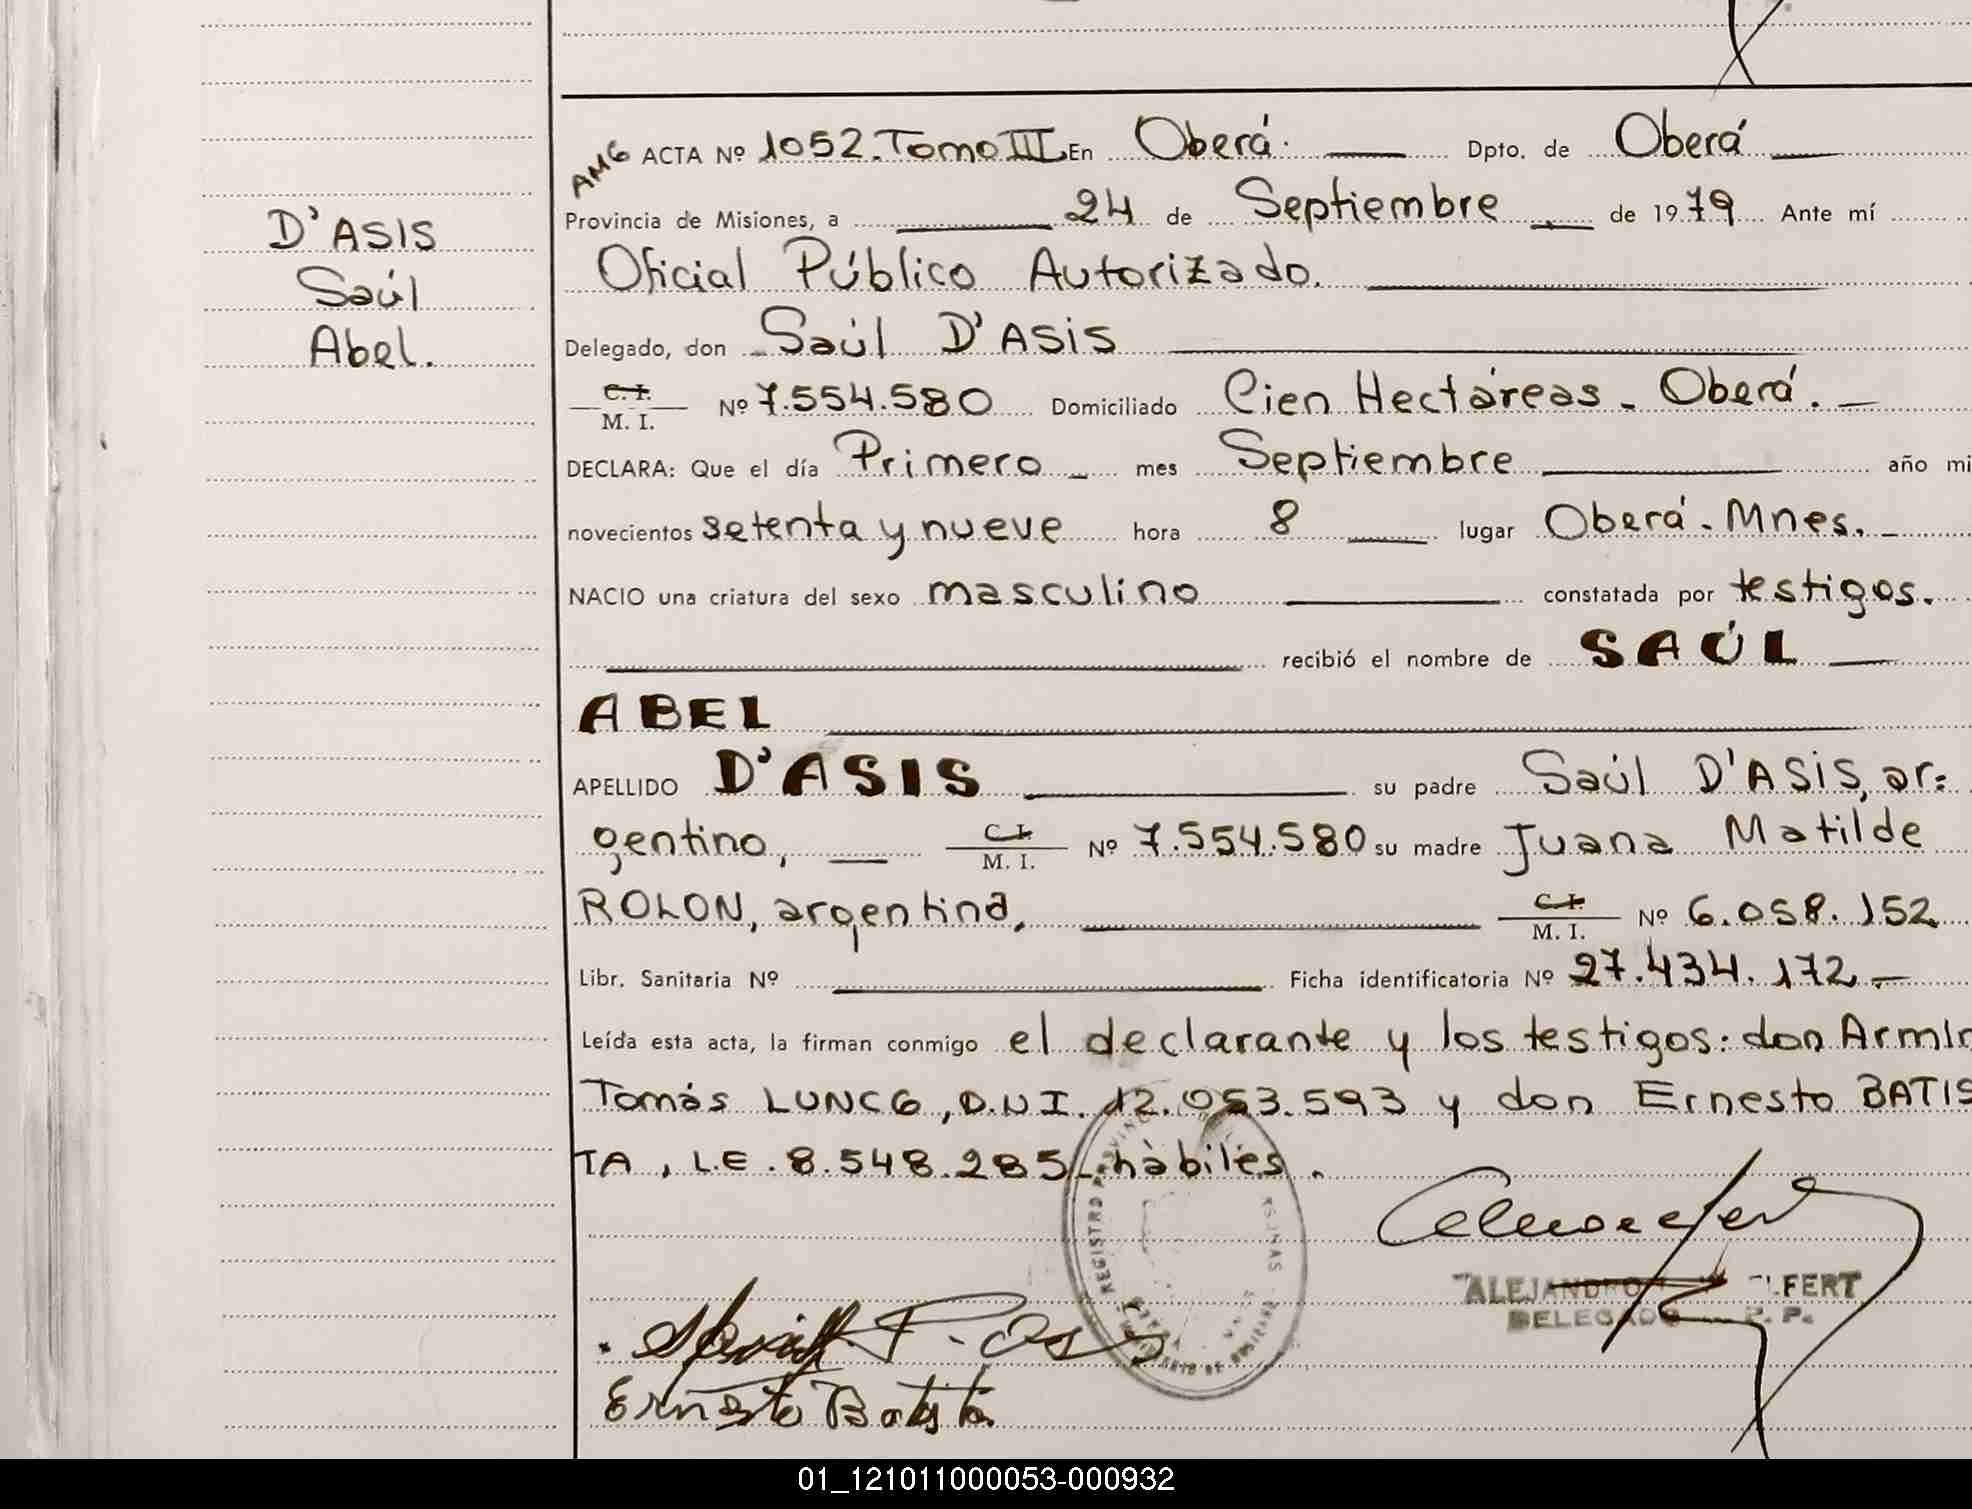 AMG ACTA Nº 1052.Tomo III En Oberá. Dpto. de Oberá
Provincia de Misiones, a 24 de Septiembre de 1979 Ante mí
D'ASIS
Saúl
Abel.
Oficial Público Autorizado.
Delegado, don Saúl D'ASIS
C. I.
M. I. Nº 7.554.580 Domiciliado Cien Hectáreas - Oberá.
DECLARA: Que el día Primero mes Septiembre año mi
novecientos setenta y nueve hora 8 lugar Oberá - Mnes.
NACIO una criatura del sexo masculino constatada por testigos.
recibió el nombre de SAÚL
ABEL
APELLIDO D'ASIS su padre Saúl D'ASIS, ar=
gentino, C. I. M. I. Nº 7.554.580 su madre Juana Matilde
ROLON, argentina, C. I. M. I. Nº 6.058.152
Libr. Sanitaria Nº Ficha identificatoria Nº 27.434.172.-
Leída esta acta, la firman conmigo el declarante y los testigos: don Armin
Tomás LUNCG, D.N.I. 12.053.593 y don Ernesto BATIS
TA, L.E. 8.548.285 - hábiles.
ALEJANDRO FERT
DELEGADO R. P.
Ernesto Batista
01_121011000053-000932